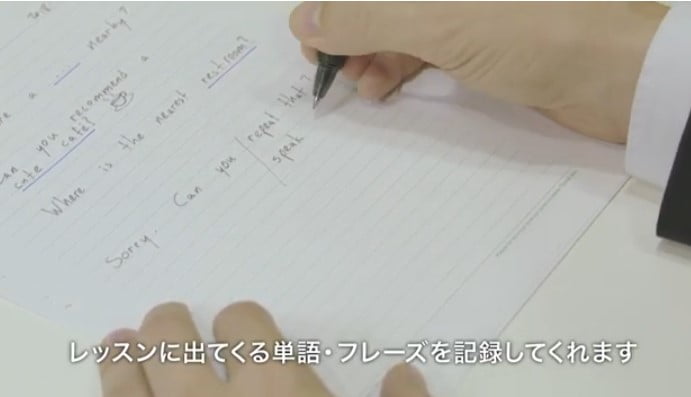 nearby?
a
Can you recommend a
cute café?
Where is the nearest restroom?
Sorry. Can you repeat that?
speak
レッスンに出てくる単語・フレーズを記録してくれます